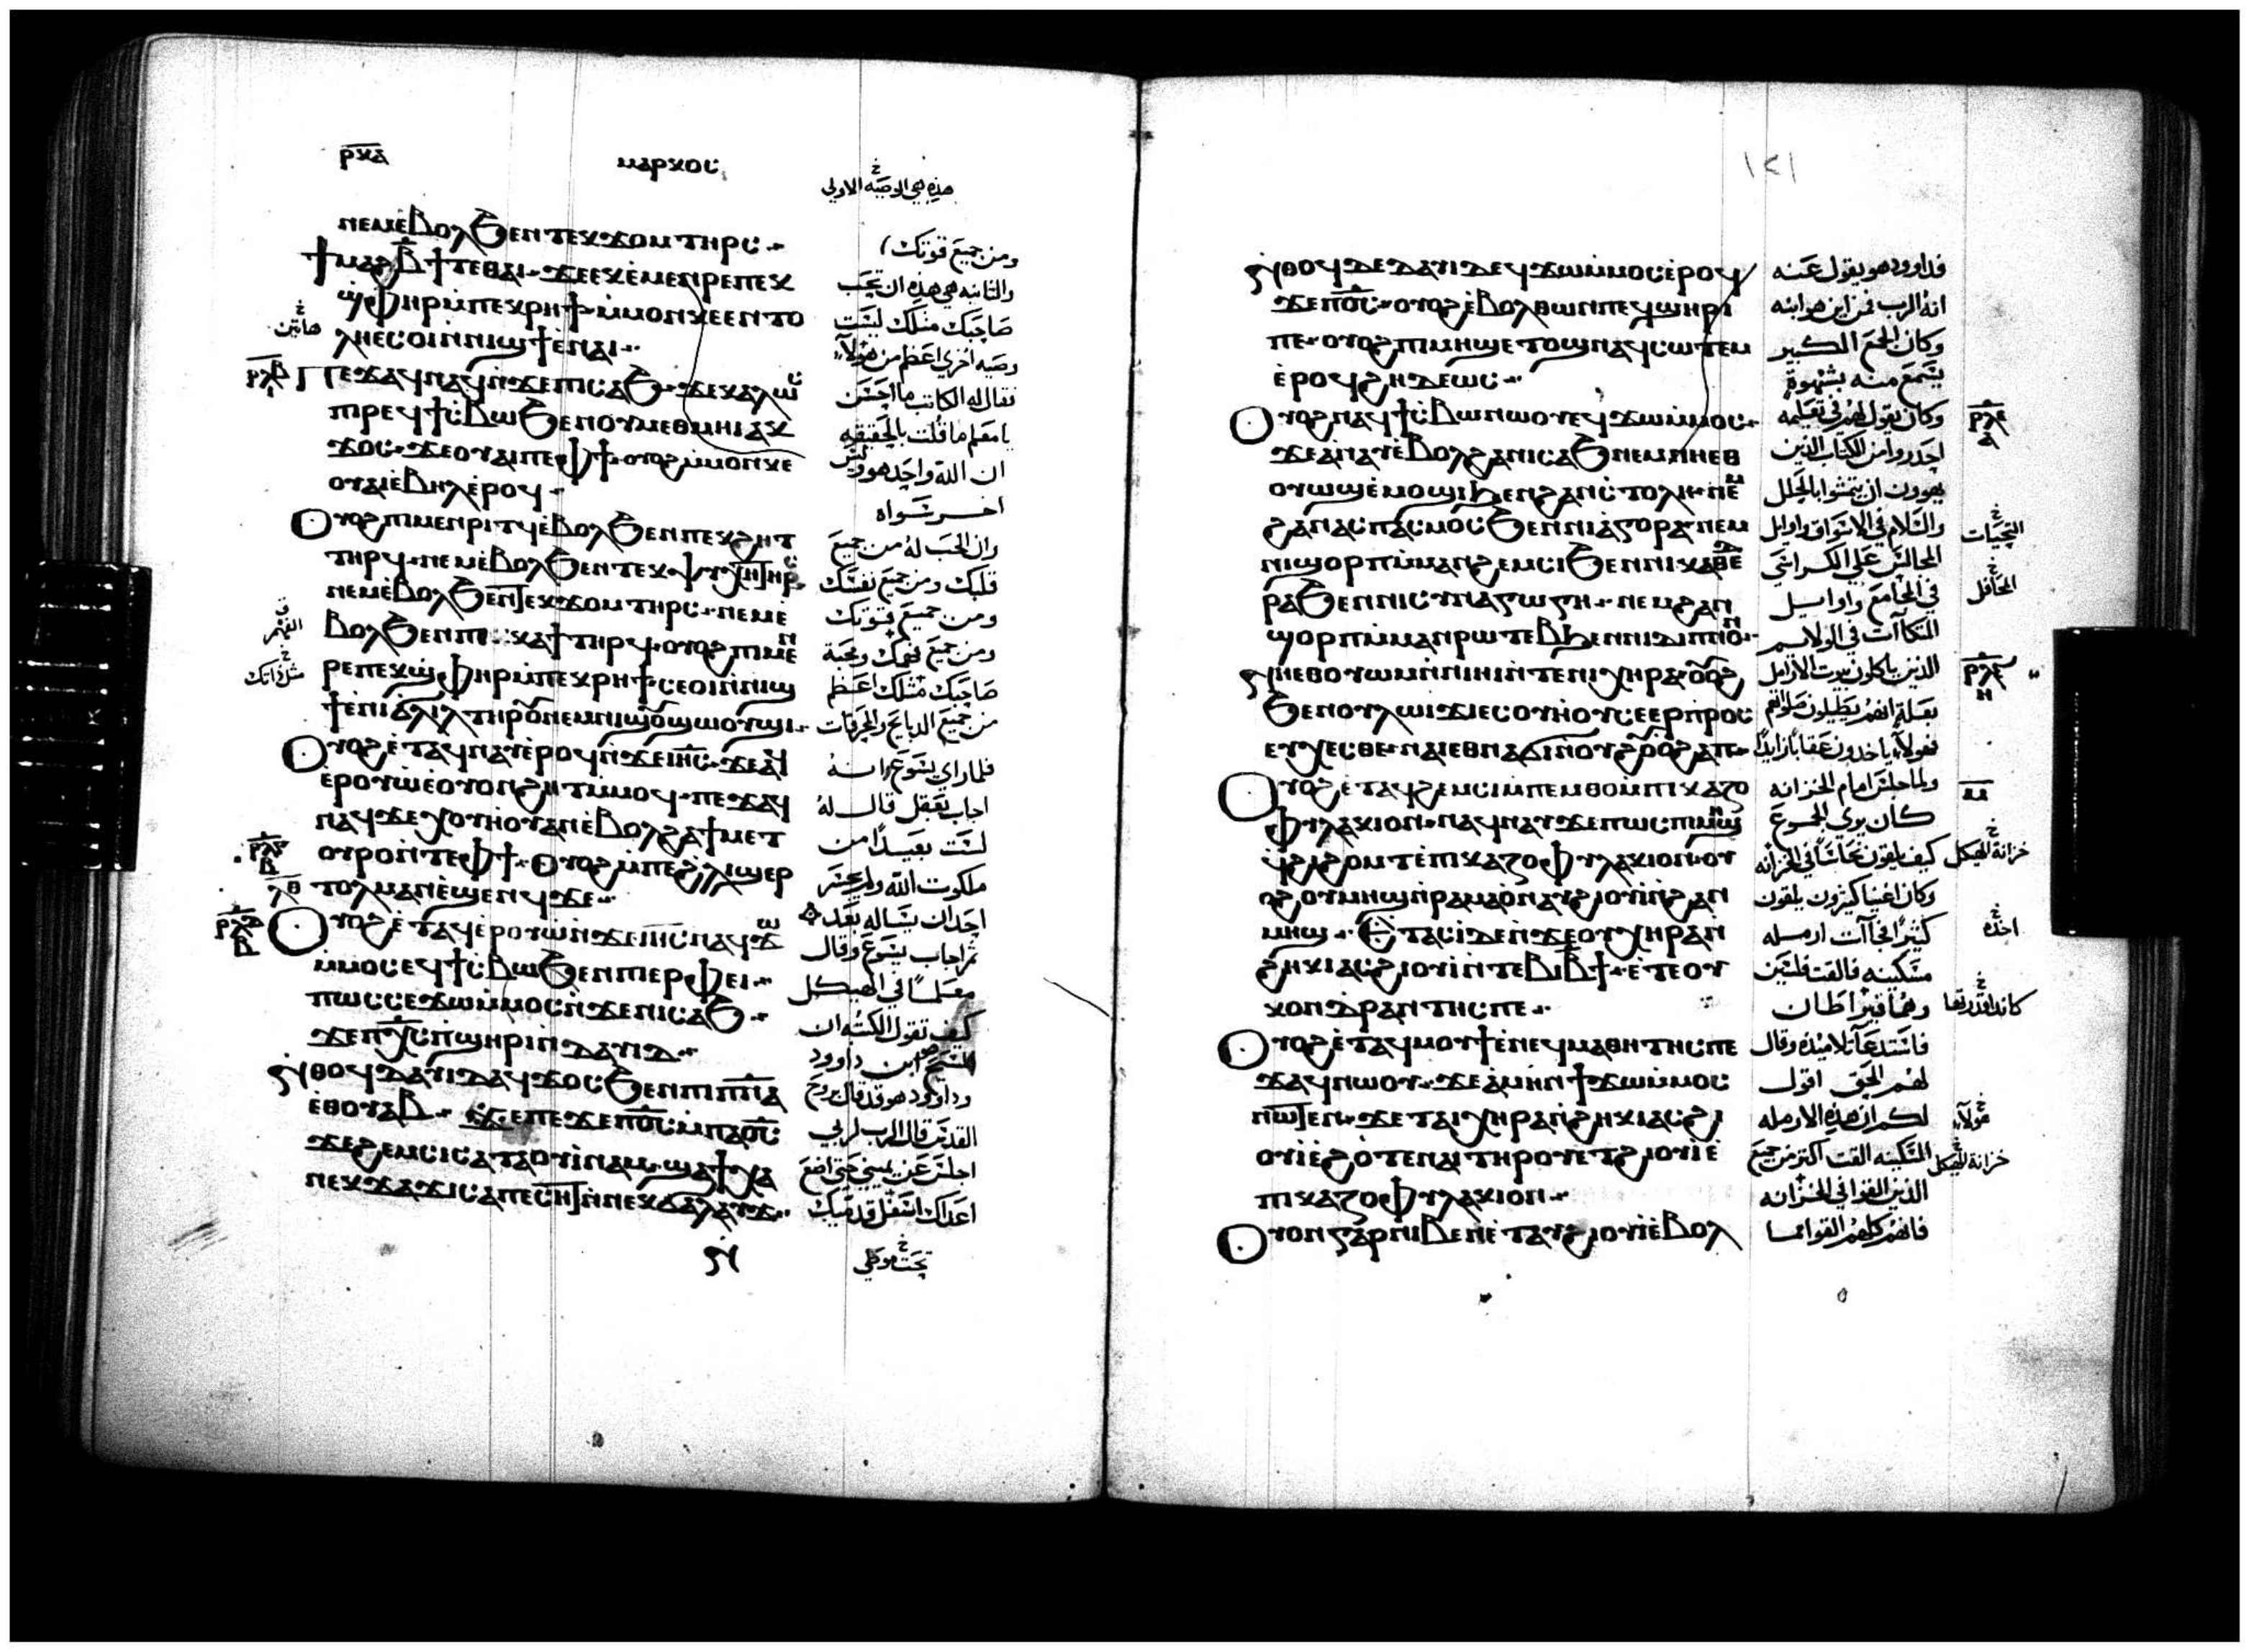 ⲣⲕⲁ
ⲙⲁⲣⲕⲟⲥ
هذه هي الوصيه الاولي
ⲛⲉⲙⲉ̀ⲃⲟⲗϧⲉⲛⲧⲉⲕϫⲟⲙⲧⲏⲣⲥ
ϯⲙⲁϩⲃ̅ϯⲧⲉⲑⲁⲓ ϫⲉⲉⲕⲉ̀ⲙⲉⲛⲣⲉⲡⲉⲕ
ϣ̀ⲫⲏⲣⲙ̀ⲡⲉⲕⲣⲏϯ ⲙ̀ⲙⲟⲛⲕⲉⲉⲛⲧⲟ
ⲗⲏⲉⲥⲟⲓⲛ̀ⲛⲓϣϯⲉ̀ⲛⲁⲓ
ⲡⲉϫⲁϥⲛⲁϥⲛ̀ϫⲉⲡⲓⲥⲁϧ ϫⲉⲕⲁⲗⲱⲥ
ⲡⲓⲣⲉϥϯⲥ̀ⲃⲱϧⲉⲛⲟⲩⲙⲉⲑⲙⲏⲓⲁⲕ
ϫⲟⲥ ϫⲉⲟⲩⲁⲓⲡⲉⲫϯ ⲟⲩⲟϩⲙ̀ⲙⲟⲛⲕⲉ
ⲟⲩⲁⲓⲉ̀ⲃⲏⲗⲉ̀ⲣⲟϥ
ⲟⲩⲟϩⲡⲓⲙⲉⲛⲣⲓⲧϥⲉ̀ⲃⲟⲗϧⲉⲛⲡⲉⲕϩⲏⲧ
ⲧⲏⲣϥ ⲛⲉⲙⲉ̀ⲃⲟⲗϧⲉⲛⲧⲉⲕⲯⲩⲭⲏⲧⲏⲣⲥ
ⲛⲉⲙⲉ̀ⲃⲟⲗϧⲉⲛⲧⲉⲕϫⲟⲙⲧⲏⲣⲥ ⲛⲉⲙⲉ̀
ⲃⲟⲗϧⲉⲛⲡⲓⲕⲁϯⲧⲏⲣϥ ⲟⲩⲟϩⲡⲓⲙⲉⲛ
ⲣⲉⲡⲉⲕϣ̀ⲫⲏⲣⲙ̀ⲡⲉⲕⲣⲏϯ ⲥⲉⲟⲓⲛ̀ⲛⲓϣ
ϯⲉ̀ⲛⲓϭⲗⲓⲗⲧⲏⲣⲟⲩⲛⲉⲙⲛⲓϣⲟⲩϣⲱⲟⲩϣⲓ
ⲟⲩⲟϩⲉ̀ⲧⲁϥⲛⲁⲩⲉ̀ⲣⲟϥⲛ̀ϫⲉⲓⲏ̅ⲥ̅ ϫⲉⲁϥ
ⲉ̀ⲣⲟⲩⲱ̀ⲉ̀ⲟⲩⲟⲛϩⲏⲧⲙ̀ⲙⲟϥ ⲡⲉϫⲁϥ
ⲛⲁϥϫⲉⲭⲟⲩⲏⲟⲩⲁⲛⲉ̀ⲃⲟⲗϩⲁϯⲙⲉⲧ
ⲟⲩⲣⲟⲛ̀ⲧⲉⲫϯ ⲟⲩⲟϩⲙ̀ⲡⲉϩ̀ⲗⲓϣⲉⲣ
ⲧⲟⲗⲙⲁⲛ̀ⲉ̀ϣⲉⲛϥϫⲉ
ⲟⲩⲟϩⲉ̀ⲧⲁϥⲉ̀ⲣⲟⲩⲱ̀ⲛ̀ϫⲉⲓⲏ̅ⲥ̅ⲛⲁϥϫⲱ
ⲙ̀ⲙⲟⲥⲉϥϯⲥ̀ⲃⲱϧⲉⲛⲡⲓⲉⲣⲫⲉⲓ
ⲡⲱⲥⲥⲉϫⲱⲙ̀ⲙⲟⲥⲛ̀ϫⲉⲛⲓⲥⲁϧ
ϫⲉⲡⲭ̅ⲥ̅ⲡ̀ϣⲏⲣⲓⲛ̀ⲇⲁⲩⲓⲇ
ⲛ̀ⲑⲟϥⲇⲁⲩⲓⲇⲁϥϫⲟⲥϧⲉⲛⲡⲓⲡ̅ⲛ̅ⲁ̅
ⲉ̀ⲑⲟⲩⲁⲃ ϫⲉⲡⲉϫⲉⲡⲟ̅ⲥ̅ⲙ̀ⲡⲁⲟ̅ⲥ̅
ϫⲉϩⲉⲙⲥⲓⲥⲁⲧⲁⲟⲩⲓ̀ⲛⲁⲙ ϣⲁϯⲭⲁ
ⲛⲉⲕϫⲁϫⲓⲥⲁⲡⲉⲥⲏⲧⲛ̀ⲛⲉⲕϭⲁⲗⲁⲩϫ
ⲛ̀
ومن جميع قوتك
والثانيه هي هذه ان تحب
صاحبك مثلك ليست
وصيه اخري اعظم من هولآ
فقال له الكاتب ما احسن
يا معلم ما قلت بالحقيقه
ان الله واحد هو وليس
اخر سواه
وان الحب له من جميع
قلبك ومن جميع نفسك
ومن جميع قوتك
ومن جميع فهمك ومحبة
صاحبك مثلك اعظم
من جميع الدبايح والمحرقات
فلما راي يسوع انه
اجاب بعقل قال له
لست بعيدًا من
ملكوت الله ولم يجسر
احد ان يساله بعد
ثم اجاب يسوع وقال
معلمًا في الهيكل
كيف تقول الكتبه ان
المسيح هو ابن داوود
وداوود هو قد قال بروح
القدس قال الرب لربي
اجلس عن يميني حتي اضع
اعداك اسفل قدميك
تحت موطي
هاتين
الفهم
مثل ذاتك
ⲣⲗⲃ
ⲗⲑ
١٢١
ⲛ̀ⲑⲟϥⲇⲉⲇⲁⲩⲓⲇⲉϥϫⲱⲙ̀ⲙⲟⲥⲉ̀ⲣⲟϥ
ϫⲉⲡⲟ̅ⲥ̅ ⲟⲩⲟϩⲉ̀ⲃⲟⲗⲑⲱⲛⲡⲉϥϣⲏⲣⲓ
ⲡⲉ ⲟⲩⲟϩⲡⲓⲙⲏϣⲉⲧⲟϣⲛⲁϥⲥⲱⲧⲉⲙ
ⲉ̀ⲣⲟϥϩⲏⲇⲉⲱⲥ
ⲟⲩⲟϩⲛⲁϥϯⲥ̀ⲃⲱⲛⲱⲟⲩⲉϥϫⲱⲙ̀ⲙⲟⲥ
ϫⲉⲁ̀ⲛⲁⲩⲉ̀ⲃⲟⲗϩⲁⲛⲓⲥⲁϧⲛⲉⲙⲛⲏⲉⲑ
ⲟⲩⲱϣⲉ̀ⲙⲟϣⲓϧⲉⲛϩⲁⲛⲥ̀ⲧⲟⲗⲏ ⲛⲉⲙ
ϩⲁⲛⲁⲥⲡⲁⲥⲙⲟⲥϧⲉⲛⲛⲓⲁ̀ⲅⲟⲣⲁ ⲛⲉⲙ
ⲛⲓϣⲟⲣⲡⲙ̀ⲙⲁⲛϩⲉⲙⲥⲓϧⲉⲛⲛⲓⲕⲁⲑⲉⲇ
ⲣⲁϧⲉⲛⲛⲓⲥⲩⲛⲁⲅⲱⲅⲏ ⲛⲉⲙϩⲁⲛ
ϣⲟⲣⲡⲙ̀ⲙⲁⲛⲣⲱⲧⲉⲃϧⲉⲛⲛⲓⲇⲓⲡⲛⲟⲛ
ⲛⲏⲉⲑⲟⲩⲱⲙⲛ̀ⲛⲓⲏⲓⲛ̀ⲧⲉⲛⲓⲭⲏⲣⲁ ⲟⲩⲟϩ
ϧⲉⲛⲟⲩⲗⲱⲓϫⲓⲉⲥⲟⲩⲏⲟⲩⲥⲉⲉⲣⲡ̀ⲣⲟⲥ
ⲉⲩⲭⲉⲥⲑⲉ ⲛⲁⲓⲉⲑⲛⲁϭⲓⲛ̀ⲟⲩϩⲟⲩⲟ̀ϩⲁⲡ
ⲟⲩⲟϩⲉ̀ⲧⲁϥϩⲉⲙⲥⲓⲙ̀ⲡⲉⲙⲑⲟⲙ̀ⲡⲓⲕⲁⲍⲟ
ⲫⲩⲗⲁⲕⲓⲟⲛ ⲛⲁϥⲛⲁⲩϫⲉⲡⲱⲥⲡⲓⲙⲏϣ
ϥ̀ϩⲓϩⲟⲙⲧⲉ̀ⲡⲓⲕⲁⲍⲟⲫⲩⲗⲁⲕⲓⲟⲛ ⲟⲩ
ⲟϩⲟⲩⲙⲏϣⲛ̀ⲣⲁⲙⲁⲟ̀ⲛⲁⲩϩⲓⲟⲩⲓⲛ̀ϩⲁⲛ
ⲙⲏϣ ⲉ̀ⲧⲁⲥⲓ̀ⲇⲉⲛ̀ϫⲉⲟⲩⲭⲏⲣⲁⲛ̀
ϩⲏⲕⲓⲁⲥϩⲓⲟⲩⲓ̀ⲛ̀ⲧⲉⲃⲓⲃ̅ϯ ⲉ̀ⲧⲉⲟⲩ
ⲕⲟⲛⲇ̀ⲣⲁⲛⲧⲏⲥⲡⲉ
ⲟⲩⲟϩⲉ̀ⲧⲁϥⲙⲟⲩϯⲉ̀ⲛⲉϥⲙⲁⲑⲏⲧⲏⲥⲡⲉ
ϫⲁϥⲛⲱⲟⲩ ϫⲉⲁ̀ⲙⲏⲛϯϫⲱⲙ̀ⲙⲟⲥ
ⲛⲱⲧⲉⲛ ϫⲉⲧⲁⲓⲭⲏⲣⲁⲛ̀ϩⲏⲕⲓⲁⲥϩⲓ
ⲟⲩⲓⲉ̀ϩⲟ̀ⲧⲉⲛⲁⲓⲧⲏⲣⲟⲩⲉⲧϩⲓⲟⲩⲓⲉ̀
ⲡⲓⲕⲁⲍⲟⲫⲩⲗⲁⲕⲓⲟⲛ
ⲟⲩⲟⲛⲅⲁⲣⲛⲓⲃⲉⲛⲉ̀ⲧⲁⲩϩⲓⲟⲩⲓⲉ̀ⲃⲟⲗ
فداوود هو يقول عنه
انه الرب فمن اين هو ابنه
وكان الجمع الكبير
يسمع منه بشهوة
وكان يقول لهم في تعليمه
احدروا من الكتاب الذين
يهوون ان يمشوا بالحلل
والسلام في الاسواق واوايل
المجالس علي الكراسي
في المجامع واوايل
المتكآت في الولايم
الذين ياكلون بيوت الارامل
بعلة انهم يطيلون صلواتهم
فهولآ ياخدون عقابًا زايدًا
ولما جلس امام الخزانه
كان يري الجموع
كيف يلقون نحاسًا في الخزانه
وكان اغنيا كثيرون يلقون
كثيرًا فجاآت ارمله
مسكينه فالقت فلسين
وهما قيراطان
فاستدعآ تلاميذه وقال
لهم الحق اقول
لكم ان هذه الارمله
المسكينه القت اكثر من جميع
الذين القوا في الخزانه
فانهم كلهم القوا مما
التحيات
المحافل
خزانة الهيكل
احده
هولآ
خزانة الهيكل
ⲙ